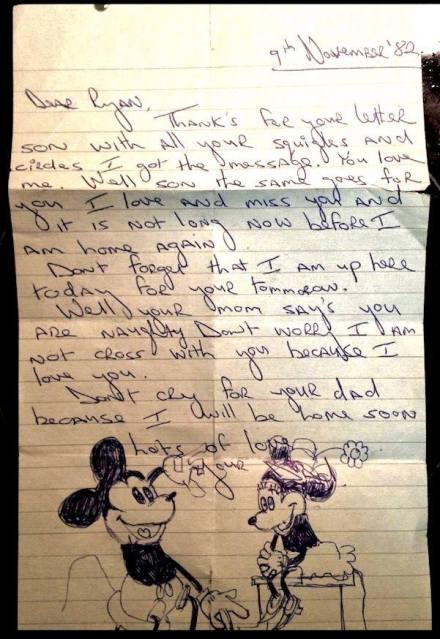 9th November '82
Dear Ryan,
Thank's for your letter
son with all your squigles and
circles I got the message. You love
me. Well son the same goes for
you I love and miss you and
it is not long now before I
am home again
Dont forget that I am up here
today for your tommorow.
Well your mom say's you
are naughty Dont worry I am
not cross with you because I
love you.
Don't cry for your dad
because I will be home soon
Lots of love
your